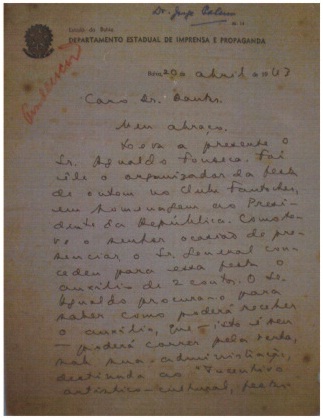 Dr. Jorge
Estado da Bahia
DEPARTAMENTO ESTADUAL DE IMPRENSA E PROPAGANDA
20 abril 43
Caro Dr. Dantas.
Meu abraço.
Leva a presente o
Sr. Agnaldo Fonseca. Foi
êle o organizador da festa
de ontem no Clube Fantoches,
em homenagem ao Presi-
dente da República. Como te-
ve o senhor ocasião de pre-
senciar, o Sr. General con-
cedeu para essa festa o
auxilio de 2 contos. O Sr.
Agnaldo procura-o para
saber como poderá receber
o auxilio, que — isto é seu
— poderá correr pela verba,
sob sua administração,
destinada ao "Incentivo
artístico-cultural,